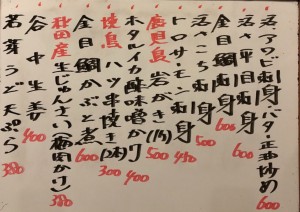 活アワビ刺身バター正油炒め 600
活平目刺身 600
金目鯛刺身 600
活さこち刺身 500
トロサーモン刺身 450
鹿児島岩がき(1ヶ) 500
ホタルイカ酢味噌かけ 400
焼鳥ハツ串焼き(2本) 300
金目鯛かぶと煮 600
秋田産生じゅんさい(梅肉かけ) 380
谷中生姜 400
若芽うど天ぷら 380